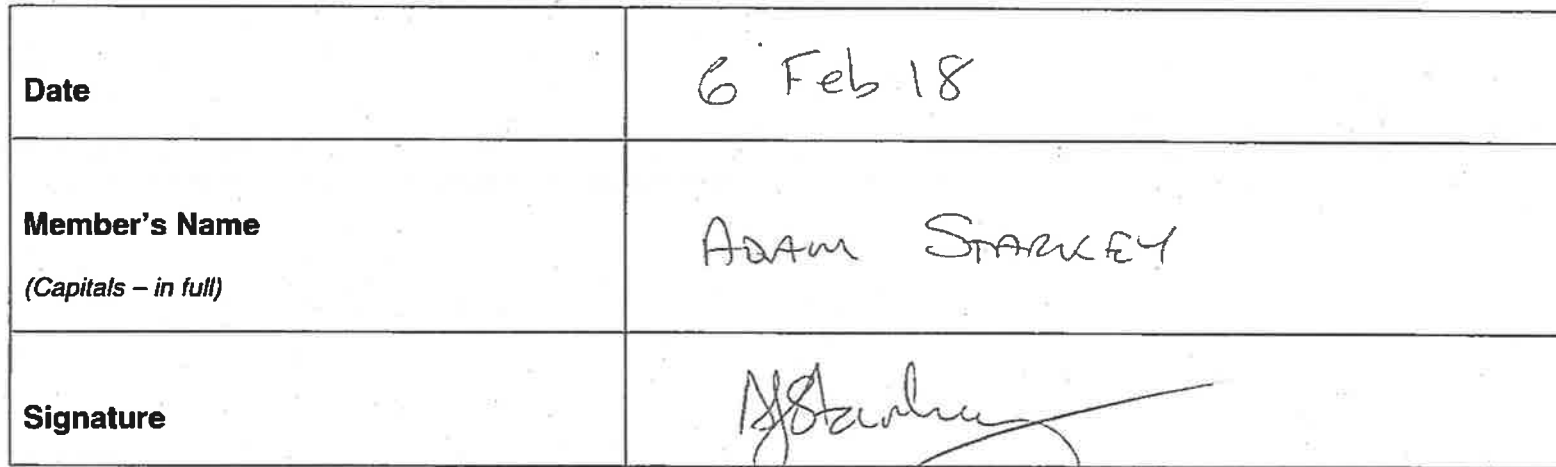 Date
6 Feb 18
Member's Name
(Capitals – in full)
ADAM STARKEY
Signature
AJStarkey